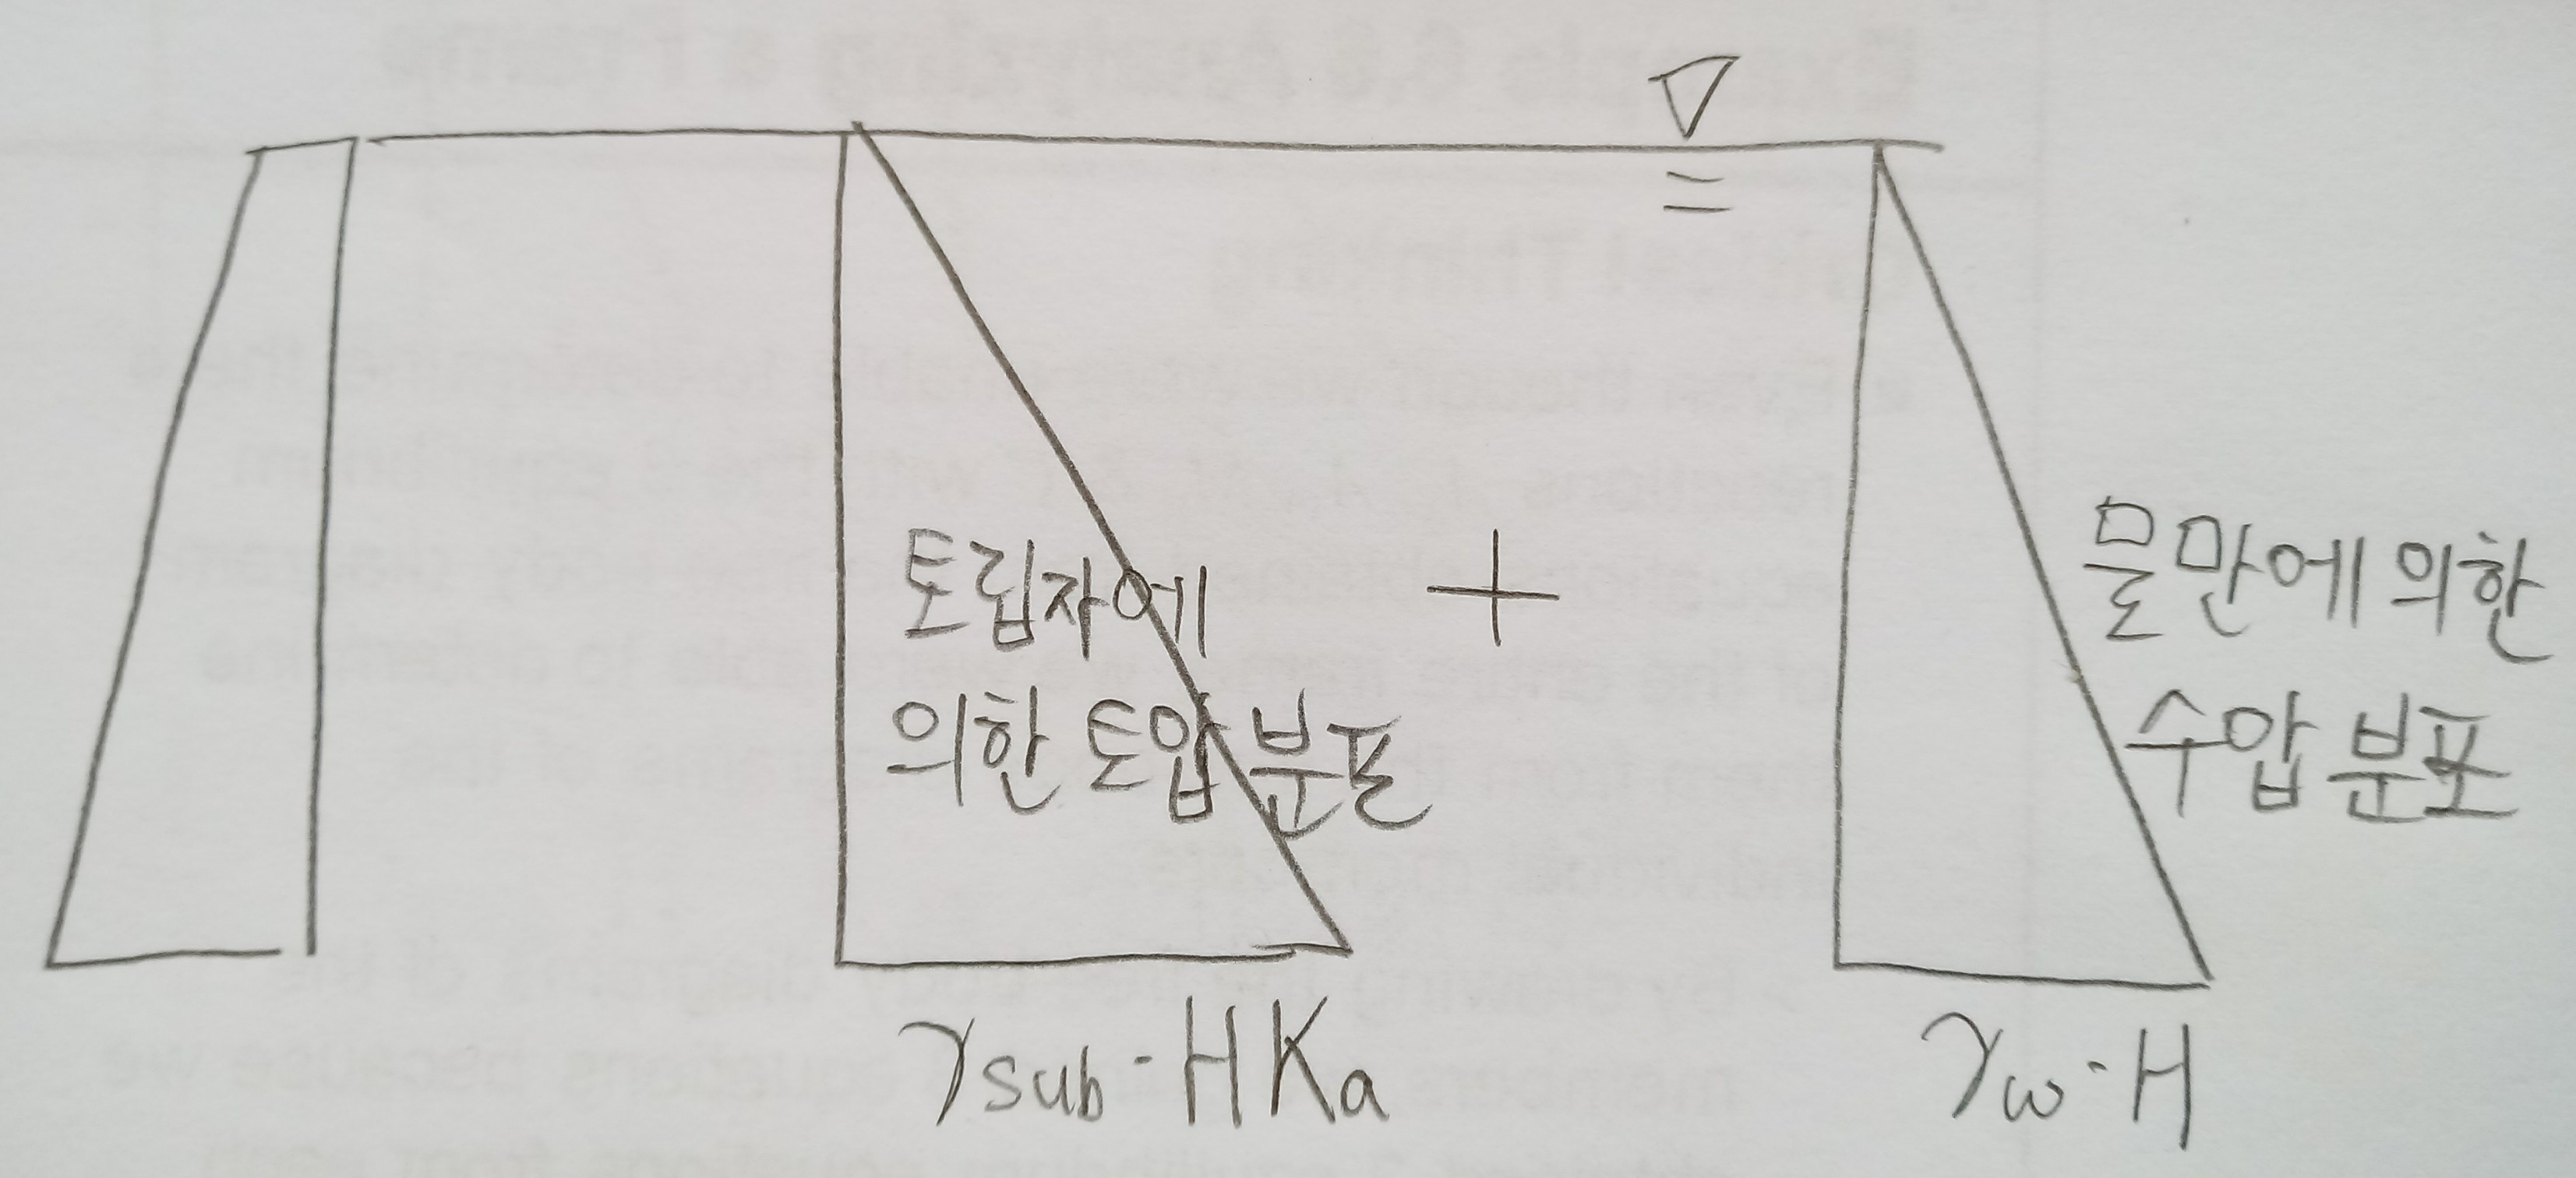 토립자에
의한 토압 분포
+
물만에 의한
수압 분포
γsub·HKa
γw·H